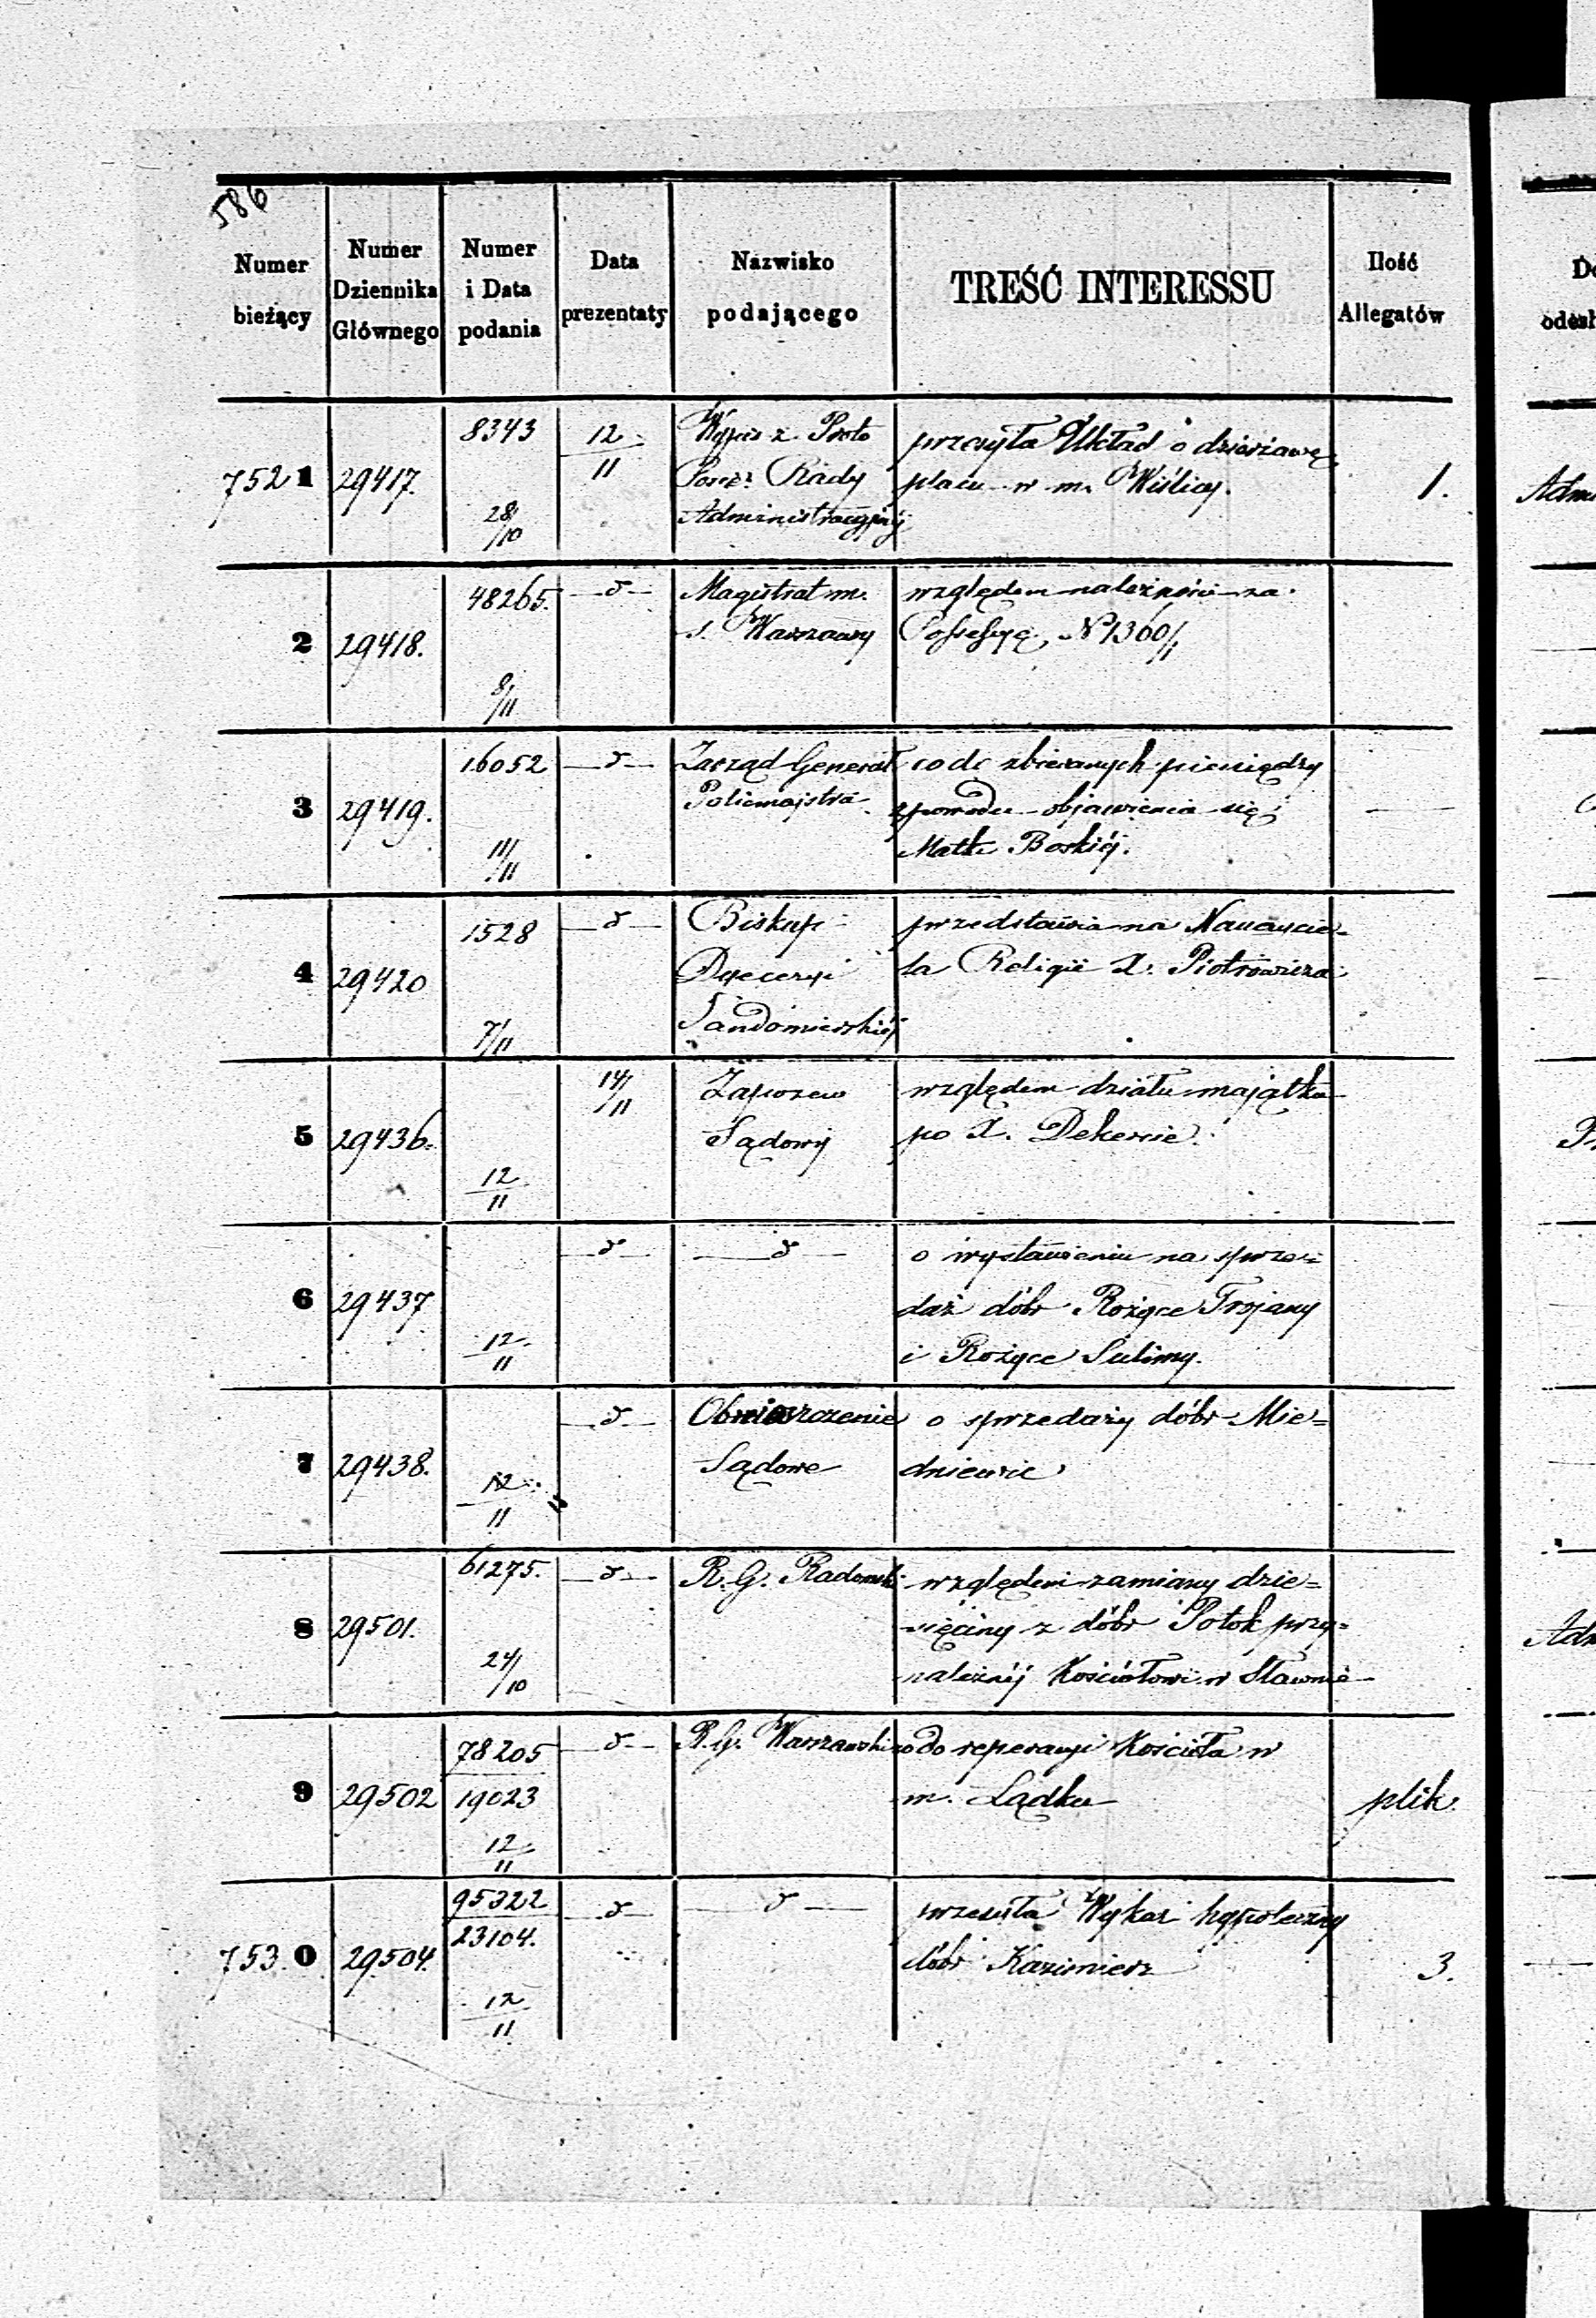 586
Numer bieżący
Numer Dziennika Głównego
Numer i Data podania
Data prezentaty
Nazwisko podającego
TREŚĆ INTERESSU
Ilość Allegatów
7521
29417.
8343
28/10
12/11
Wypis z Proto
Posiedz. Rady
Administracyjnéj
przesyła Układ o dzierżawę
placu w m. Wiślicy.
1.
2
29418.
48265.
8/11
d
Magistrat m.
s. Warszawy
względem należności za
Possessyę N 1360/11
3
29419.
16052
11/11
d
Zarząd Generał
Policmajstra
co do zbieranych pieniędzy
z powodu objawienia się
Matki Boskiéj.
4
29420
1528
7/11
d
Biskup
Dyecezyi
Sandomierskiéj
przedstawia na Nauczycie=
la Religii X. Piotrowicza
5
29436.
12/11
14/11
Zapozew
Sądowy
względem działu majątku
po X. Dekercie.
6
29437
12/11
d
d
o wystawieniu na sprze=
daż dóbr Rożyce Trojany
i Rożyce Sulimy.
7
29438.
12/11
d
Obwieszczenie
Sądowe
o sprzedaży dóbr Mie=
dniewice
8
29501.
61275.
24/10
d
R. G. Radomski
względem zamiany dzie=
sięciny z dóbr Potok przy=
należnéj Kościołowi w Sławnie
9
29502
78205
19023
12/11
d
R. G. Warszawski
co do reperacyi Kościoła w
m. Lądku
plik.
7530
29504.
95322
23104.
12/11
d
d
przesyła Wykaz hypoteczny
dóbr Kazimierz
3.